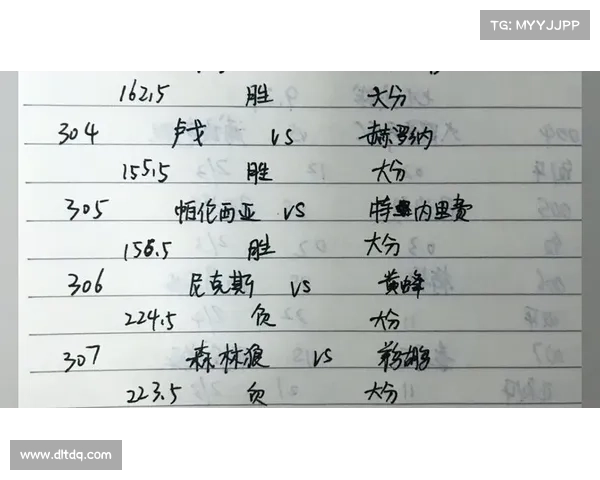 TG: MYYJJPP
162.5 胜 大分
304 卢戈 VS 赫罗纳
155.5 胜 大分
305 帕伦西亚 VS 特内里费
156.5 胜 大分
306 尼克斯 VS 黄蜂
224.5 负 大分
307 森林狼 VS 鹈鹕
223.5 负 大分
www.dltdq.com